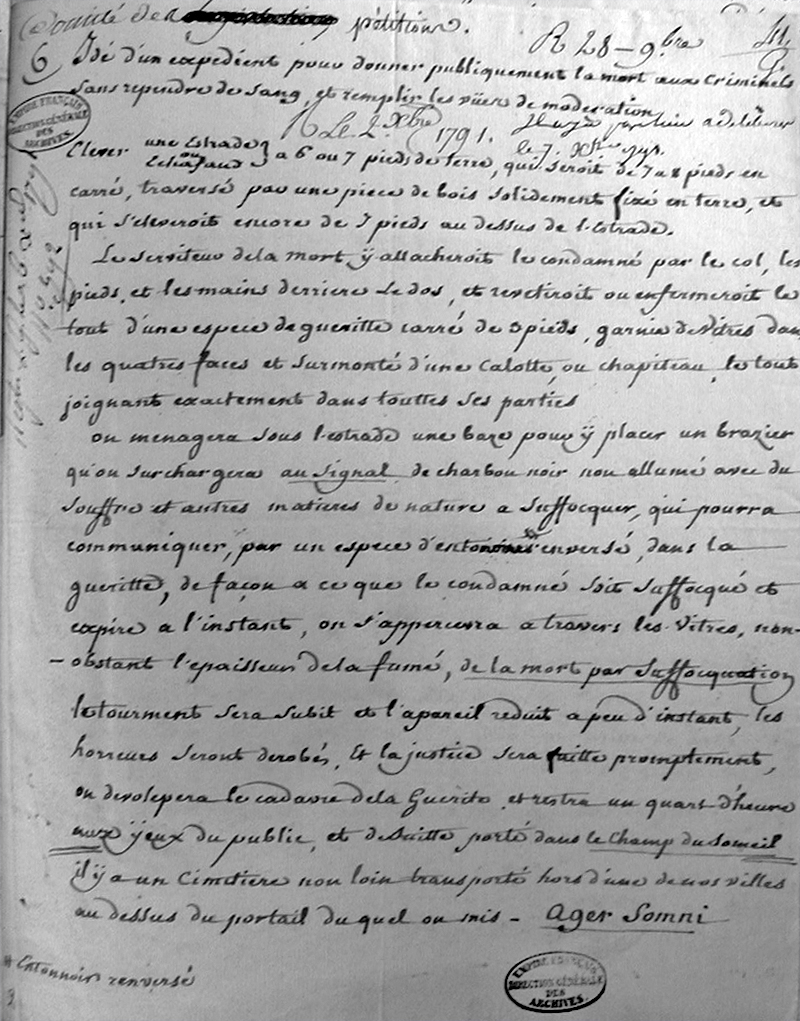 Comité de pétitions.
R 28 - 9.bre
6
Idé d'un expedient pour donner publiquement la mort aux Criminels
sans repndre de sang, et remplir les vües de moderation
R Le 2. Xbre 1791.
a délibérer
le 7. Xbre
EMPIRE FRANÇAIS
DIRECTION GÉNÉRALE
DES
ARCHIVES
Elever une Estrade ou Echafaud a 6 ou 7 pieds de terre, qui seroit de 7 a 8 pieds en
carré, traversé par une piece de bois solidement fixé en terre, et
qui s'eleveroit encore de 7 pieds au dessus de l'estrade.
Le serviteur de la mort ÿ attacheroit le condamné par le col, les
pieds, et les mains derriere Le dos, et revetiroit ou enfermeroit le
tout d'une espece de gueritte carré de 3 pieds, garnie de Vitres dans
les quatres faces et surmonté d'une Calotte, ou chapiteau, le tout
joignant exactement dans touttes ses parties
on menagera sous l'estrade une baze pour ÿ placer un brazier
qu'on surchargera au signal de charbon noir non allumé avec du
souffre et autres matieres de nature a suffocquer, qui pourra
communiquer, par un espece d'entonnoir enversé, dans la
gueritte, de façon a ce que le condamné soit suffocqué et
expire a l'instant, on s'appercevra a travers les Vitres, non-
- obstant l'epaisseur de la fumé, de la mort par suffocquation
le tourment sera subit et l'apareil reduit a peu d'instant, les
horreurs seront derobés, Et la justice sera faitte promptement,
on devolepera le cadavre de la Guerite et restra un quart d'heure
aux ÿeux du public, et de suitte porté dans le Champ du Someil
il ÿ a un Cimitière non loin transporté hors d'une de nos villes
au dessus du portail du quel on mis - Ager Somni
# Entonnoir renversé
EMPIRE FRANÇAIS
DIRECTION GÉNÉRALE
DES
ARCHIVES